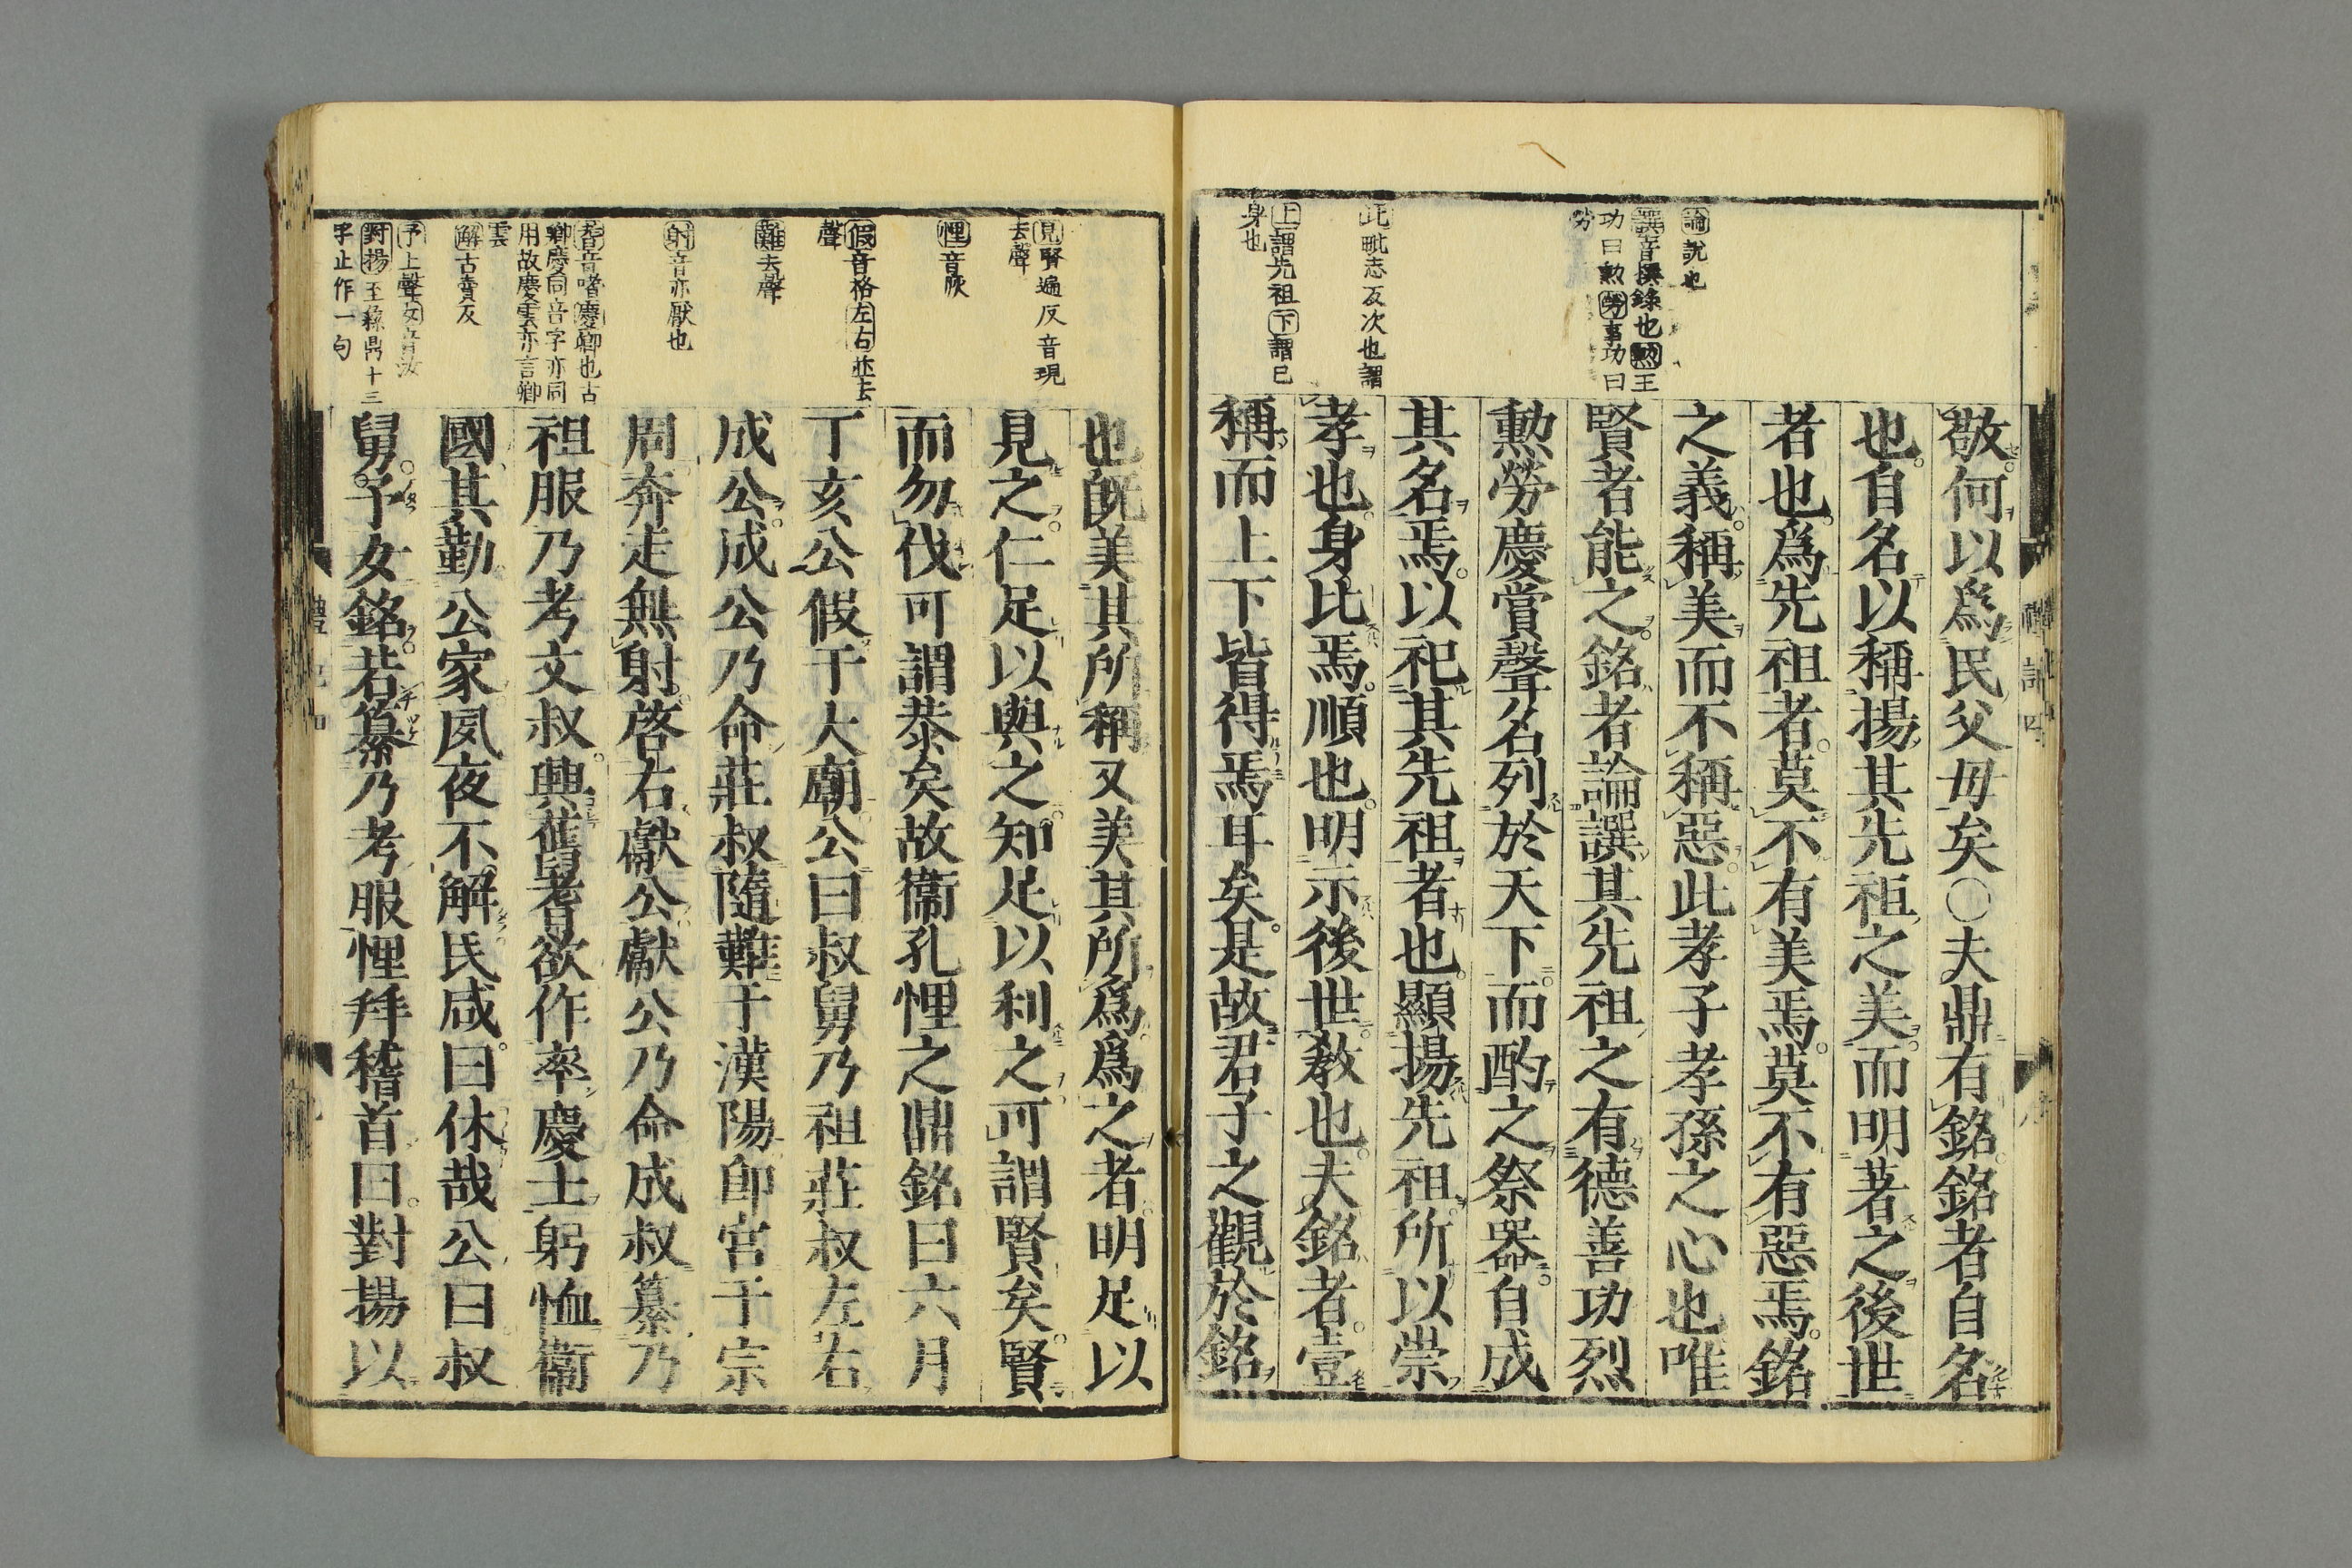 論說也
譔音撰錄也勲王
功曰勲勞事功曰
勞
比毗志反次也謂
上謂先祖下謂已
身也
敬何以爲民父毋矣○夫鼎有銘銘者自名
也自名以稱揚其先祖之美而明著之後世
者也爲先祖者莫不有美焉莫不有惡焉銘
之義稱美而不稱惡此孝子孝孫之心也唯
賢者能之銘者論譔其先祖之有德善功烈
勲勞慶賞聲名列於天下而酌之祭器自成
其名焉以祀其先祖者也顯揚先祖所以崇
孝也身比焉順也明示後世教也夫銘者壹
稱而上下皆得焉耳矣是故君子之觀於銘
禮記四
見賢遍反音現
去聲
悝音恢
假音格左右並去
聲
難去聲
射音亦厭也
耆音嗜慶卿也古
卿慶同音字亦同
用故慶雲亦言卿
雲
解古賣反
予上聲女音汝
對揚至彛鼎十三
字止作一句
也旣美其所稱又美其所爲爲之者明足以
見之仁足以與之知足以利之可謂賢矣賢
而勿伐可謂恭矣故衞孔悝之鼎銘曰六月
丁亥公假于大廟公曰叔舅乃祖莊叔左右
成公成公乃命莊叔隨難于漢陽卽宮于宗
周奔走無射啓右獻公獻公乃命成叔纂乃
祖服乃考文叔興舊耆欲作率慶士躬恤衞
國其勤公家夙夜不解民咸曰休哉公曰叔
舅予女銘若纂乃考服悝拜稽首曰對揚以